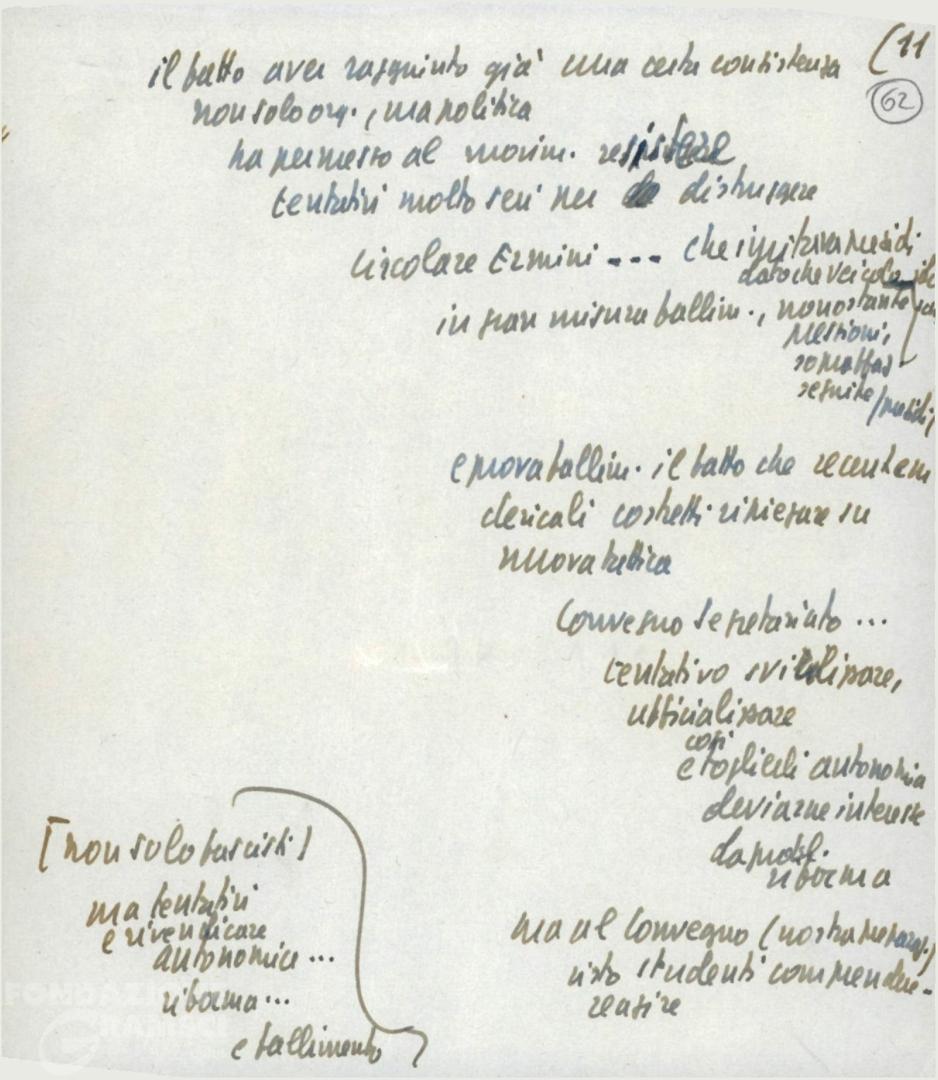 (11
62
il fatto aver raggiunto già una certa consistenza
non solo org., ma politica
ha permesso al movim. resistere
tentativi molto seri per distruggere
Circolare Ermini --- che invitava presidi
dato che veicolo
in gran misura fallim., nonostante
pressioni,
soprattutto
presidi
e prova fallim. il fatto che recentem
clericali costretti ripiegare su
nuova tattica
Convegno Segretariato ...
tentativo svililizzare,
ufficializzare
così
e togliedi autonomia
deviarne interesse
da probl.
riforma
[non solo fascisti]
ma tentativi
e rivendicare
autonomia ...
riforma ...
e fallimento
ma al Convegno (nostra
visto studenti comprendere -
reagire
FONDAZIONE
GRAMSCI